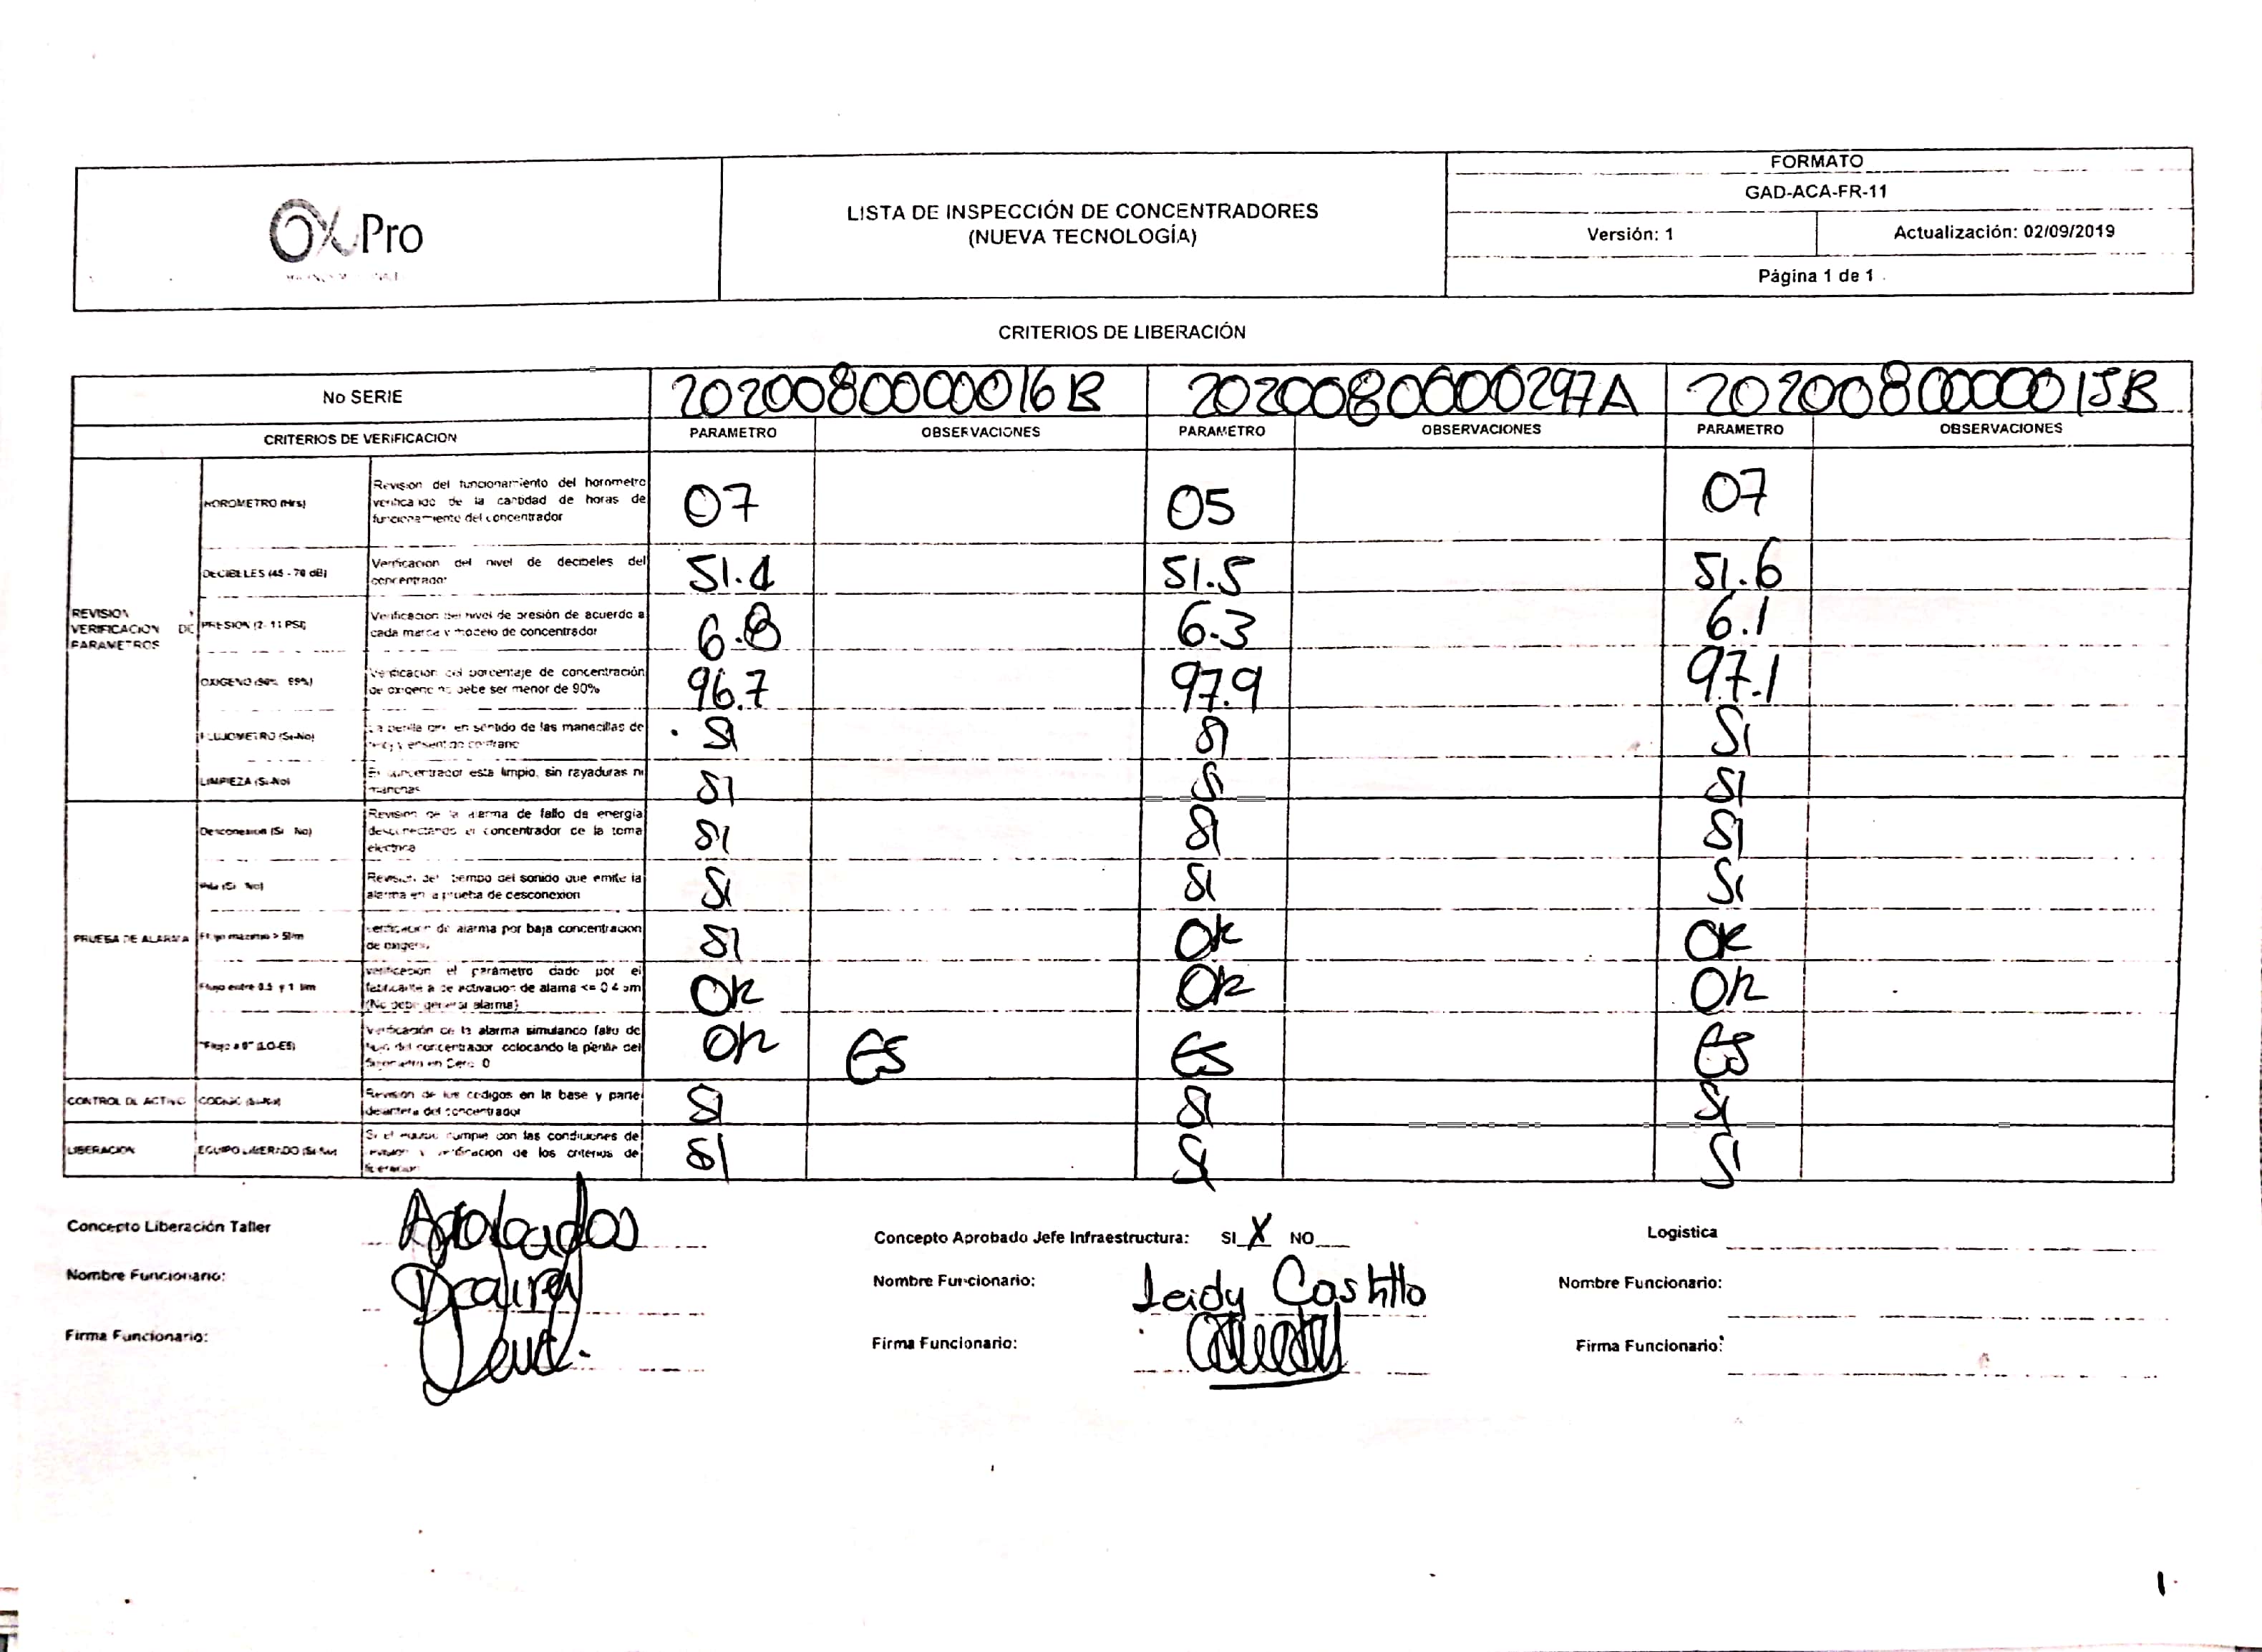 OxPro
LISTA DE INSPECCIÓN DE CONCENTRADORES
(NUEVA TECNOLOGÍA)
FORMATO
GAD-ACA-FR-11
Versión: 1 Actualización: 02/09/2019
Página 1 de 1
CRITERIOS DE LIBERACIÓN
No SERIE 2020080000016B 2020080000297A 2020080000015B
CRITERIOS DE VERIFICACION PARAMETRO OBSERVACIONES PARAMETRO OBSERVACIONES PARAMETRO OBSERVACIONES
REVISION Y
VERIFICACION DE
PARAMETROS
HOROMETRO (Hrs)
Revision del funcionamiento del horometro
de la cantidad de horas de
funcionamiento del concentrador
07 05 07
DECIBELES (45 - 70 dB)
Verificacion del nivel de decibeles del
concentrador
51.1 51.5 51.6
PRESION (2- 11 PSI)
Verificacion del nivel de presión de acuerdo a
cada marca y modelo de concentrador
6.8 6.3 6.1
OXIGENO
Verificacion del porcentaje de concentración
de oxigeno no debe ser menor de 90%
96.7 97.9 97.1
FLUJOMETRO (Si-No)
La perilla en sentido de las manecillas de
SI SI SI
LIMPIEZA (Si-No)
El concentrador esta limpio, sin rayaduras ni
manchas
SI SI SI
PRUEBA DE ALARMA
Desconexion (Si No)
Revision de la alarma de fallo de energia
desconectando el concentrador de la toma
electrica
SI SI SI
Revision del tiempo del sonido que emite la
alarma en la prueba de desconexion
SI SI SI
Flujo maximo > 5l/m
verificacion de alarma por baja concentracion
de oxigeno
SI OK OK
Flujo entre 0.5 y 1 l/m
verificacion el parámetro dado por el
fabricante
(No debe generar alarma)
OK OK OK
"Flujo a 0" (LO-ES)
Verificación de la alarma simulando fallo de
flujo del concentrador colocando la perilla del
en Cero 0
OK ES ES ES
CONTROL DE ACTIVO
Revisión de los codigos en la base y parte
delantera del concentrador
SI SI SI
LIBERACION
EQUIPO LIBERADO
Si el equipo cumple con las condiciones de
verificacion de los criterios de
liberacion
SI SI SI
Concepto Liberación Taller Aprobados
Concepto Aprobado Jefe Infraestructura: SI X NO
Logistica
Nombre Funcionario:
Nombre Funcionario: Leidy Castillo
Nombre Funcionario:
Firma Funcionario:
Firma Funcionario:
Firma Funcionario: